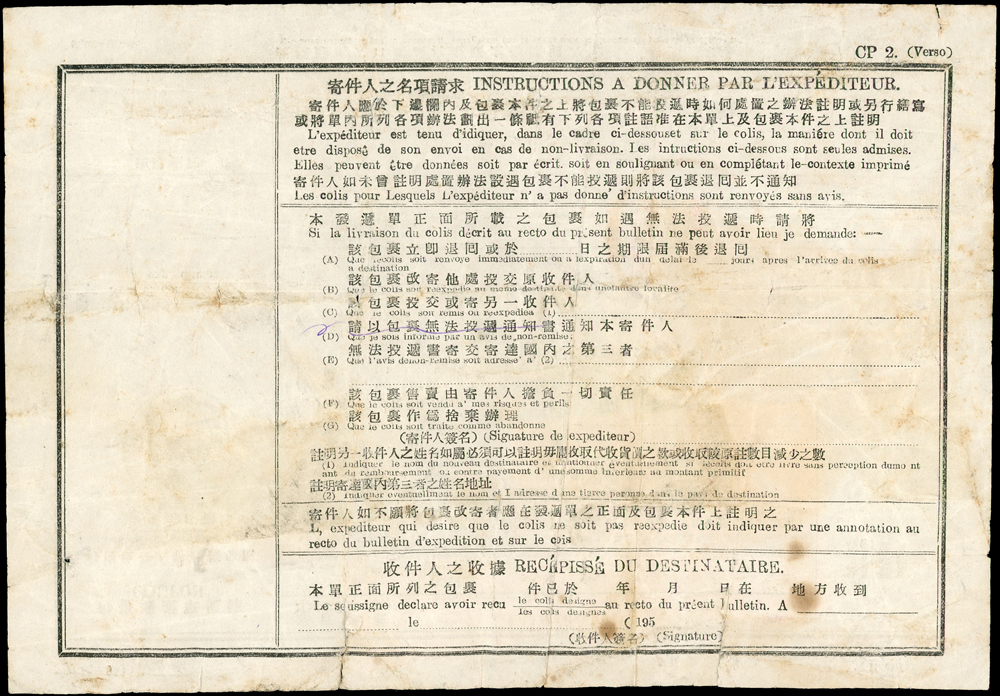 CP 2. (Verso)
寄件人之各項請求 INSTRUCTIONS A DONNER PAR L'EXPÉDITEUR.
寄件人應於下邊欄內及包裹本件之上將包裹不能投遞時如何處置之辦法註明或另行繕寫
或將單內所列各項辦法劃出一條祇有下列各項註語准在本單上及包裹本件之上註明
L'expéditeur est tenu d'idiquer, dans le cadre ci-dessouset sur le colis, la maniére dont il doit
etre disposé de son envoi en cas de non-livraison. Les intructions ci-dessous sont seules admises.
Elles peuvent être données soit par écrit. soit en soulignant ou en complétant le-contexte imprimé
寄件人如未曾註明處置辦法設遇包裹不能投遞則將該包裹退囘並不通知
Les colis pour Lesquels L'expéditeur n' a pas donné d'instructions sont renvoyés sans avis.
本發遞單正面所載之包裹如遇無法投遞時請將
Si la livraison du colis décrit au recto du présent bulletin ne peut avoir lieu je demande:
該包裹立卽退囘或於 日之期限屆滿後退囘
(A) Que lecolis soit renvoye immediatement ou a lexpiration dun delai le jours apres l'arrivee du colis
a destination
該包裹改寄他處投交原收件人
(B) Que le colis soit reexpedie au meme destinataire dans unautre localite
該包裹投交或寄另一收件人
(C) Que le colis soit remis ou reexpedies (1)
請以包裹無法投遞通知書通知本寄件人
(D) Que je sois informe par un avis de non-remise:
無法投遞書寄交寄達國內之第三者
(E) Que l'avis denon-remise soit adresse' a' (2)
該包裹售賣由寄件人擔負一切責任
(F) Que le colis soit vendu a' mes risques et perils:
該包裹作爲捨棄辦理
(G) Que le colis soit traite comme abandonne
(寄件人簽名) (Siguature de expediteur)
註明另一收件人之姓名如屬必須可以註明毋庸收取代收貨價之款或收取較原註數目減少之數
(1) Indiquer le nom du nouveau destinataire et mentionner eventuellement si lecolis doit etre livre sans perception dumo nt
ant du remboursement ou contre payement d' unesomme inferieure au montant primitif
註明寄達國內第三者之姓名地址
(2) Indiquer eventuellment le nom et l adresse d une tierce peronne dans le pays de destination
寄件人如不願將包裹改寄者應在發遞單之正面及包裹本件上註明之
L, expediteur qui desire que le colis ne soit pas reexpedie doit indiquer par une annotation au
recto du bulletin d'expedition et sur le cois
收件人之收據 RECÉPISSÉ DU DESTINATAIRE.
本單正面所列之包裹 件已於 年 月 日在 地方收到
Le soussigne declare avoir recu le colis designe au recto du présent bulletin. A
les colis designes
le ( 195
(收件人簽名) (Signature)